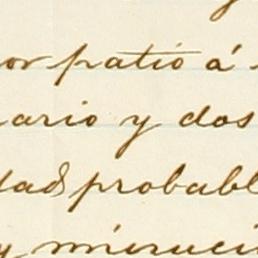 or patio á
ario y dos
dad probabl
y minuci